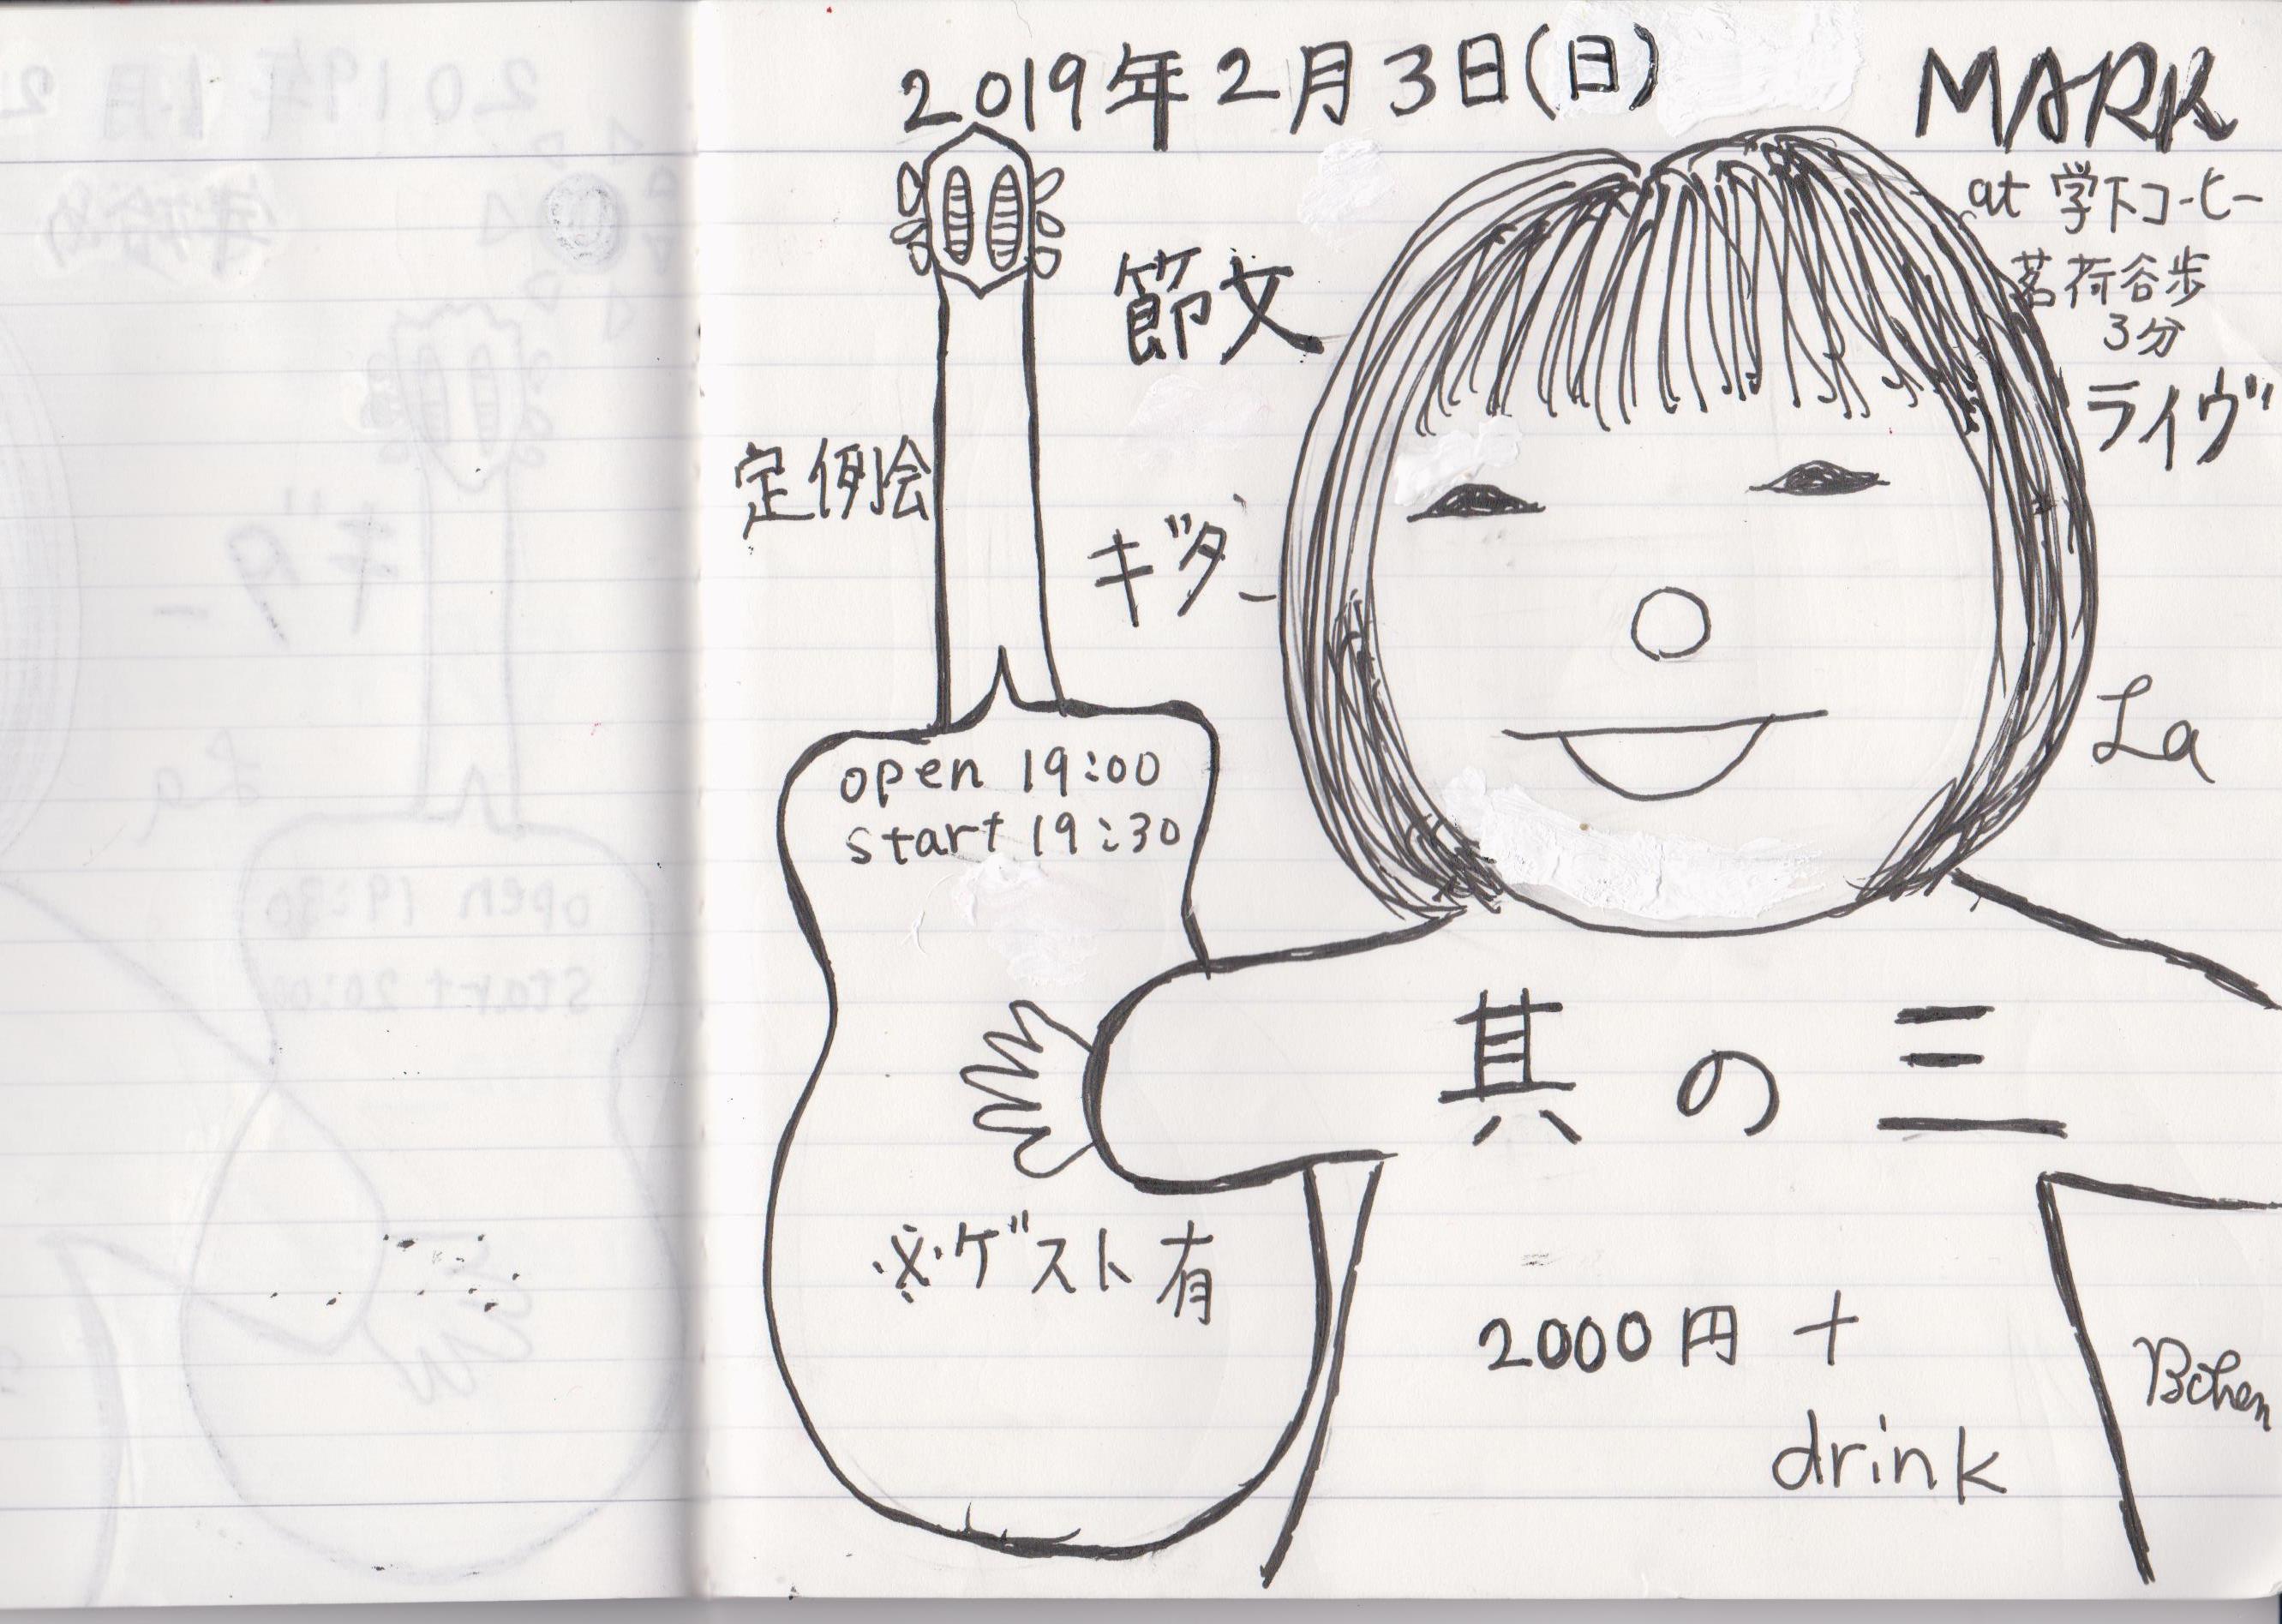 2019年2月3日(日)
MARK
at 学下コーヒー
茗荷谷歩
3分
ライヴ
節文
定例会
ギター
La
open 19:00
start 19:30
其の三
※ゲスト有
2000円+
drink